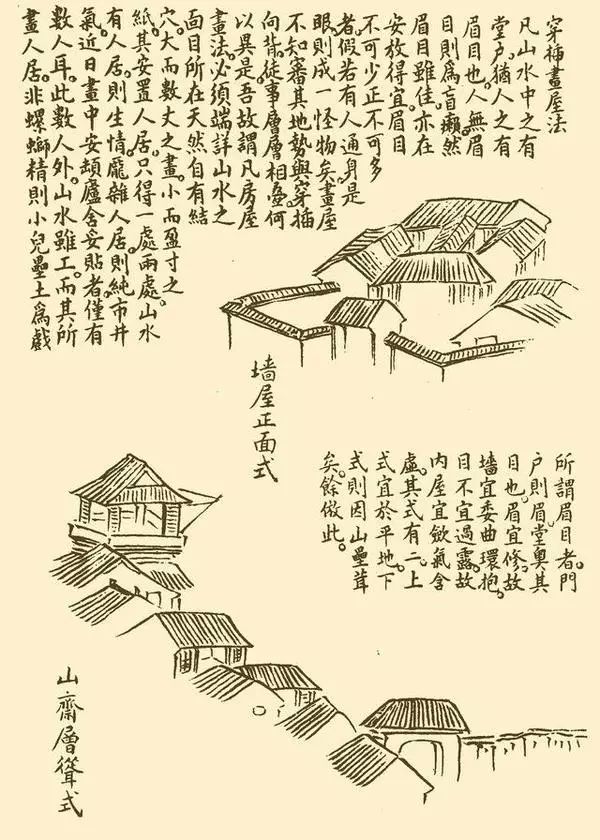 穿揷畫屋法
凡山水中之有
堂戶猶人之有
眉目也。人無眉
目則爲盲癩。然
眉目雖佳亦在
安放得宜眉目
不可少正不可多
者。假若有人通身是
眼則成一怪物矣。畫屋
不知審其地勢與穿插
向背。徒事層層相壘。何
以異是。吾故謂凡房屋
畫法。必須端詳山水之
面目所在天然自有結
穴。大而數丈之畫。小而盈寸之
紙。其安置人居。只得一處兩處。山水
有人居。則生情。龐雜人居。則純市井
氣。近日畫中安頓廬舍妥貼者。僅有
數人耳。此數人外。山水雖工。而其所
畫人居。非螺螄精則小兒壘土爲戲
墻屋正面式
所謂眉目者。門
戶則眉。堂奧其
目也。眉宜修。故
墻宜委曲環抱。
目不宜過露。故
內屋宜斂氣含
虛。其式有二。上
式宜於平地。下
式則因山壘葺
矣。餘倣此。
山齋層聳式